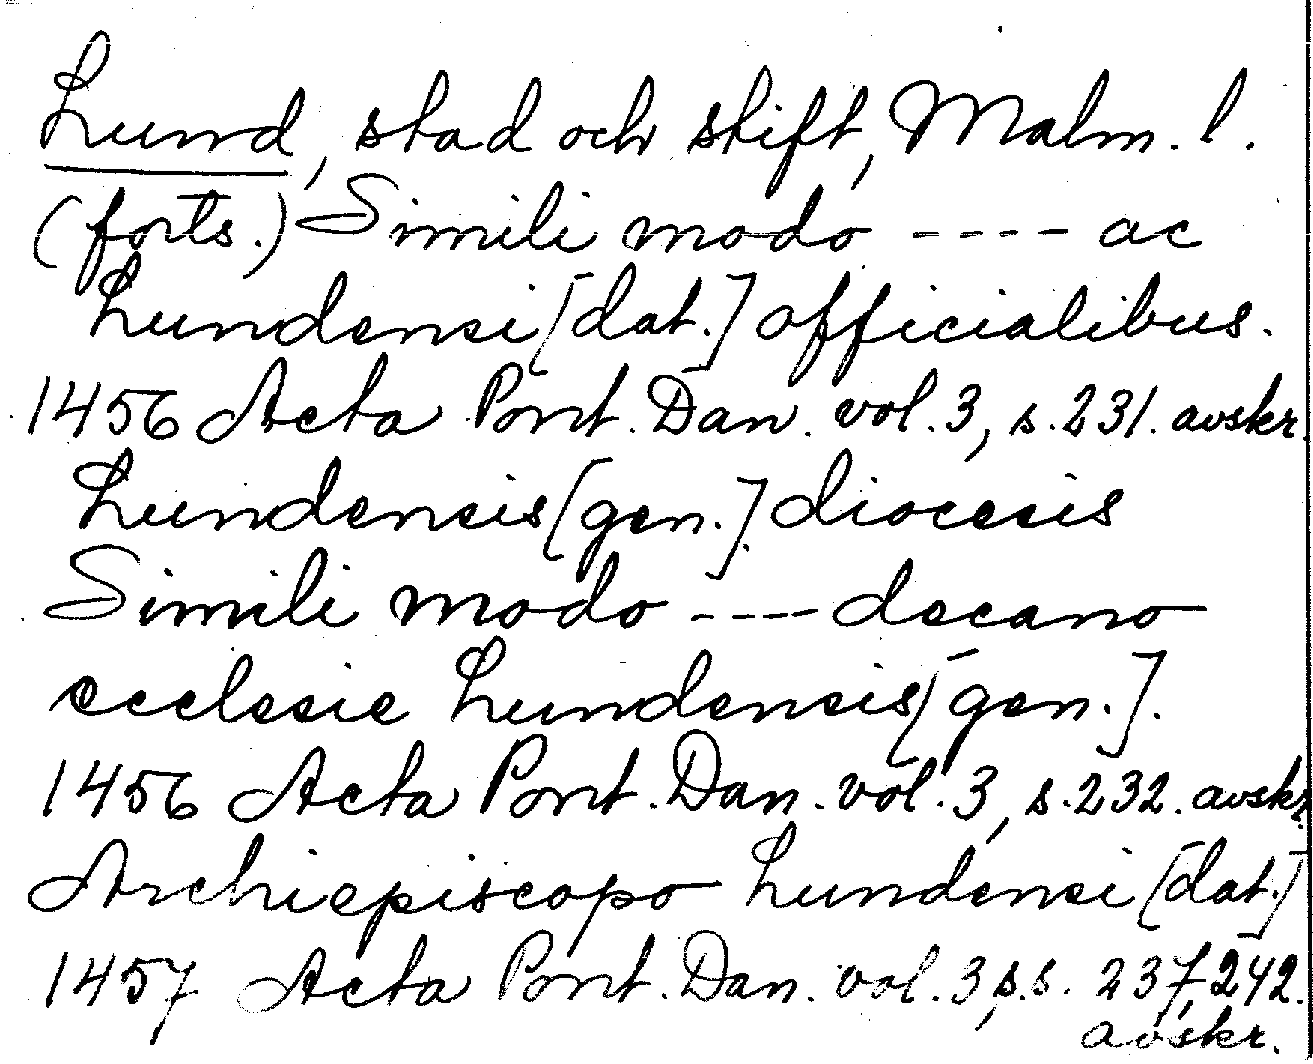 Lund, stad och stift, Malm. l.
(forts.) Simili modo ---- ac
Lundensi [dat.] officialibus.
1456 Acta Pont. Dan. vol. 3, s. 231. avskr.
Lundensis [gen.] diocesis
Simili modo --- decano
ecclesie Lundensis [gen.].
1456 Acta Pont. Dan. vol. 3, s. 232. avskr.
Archiepiscopo Lundensi [dat.]
1457 Acta Pont. Dan. vol. 3, s.s. 237, 242.
avskr.